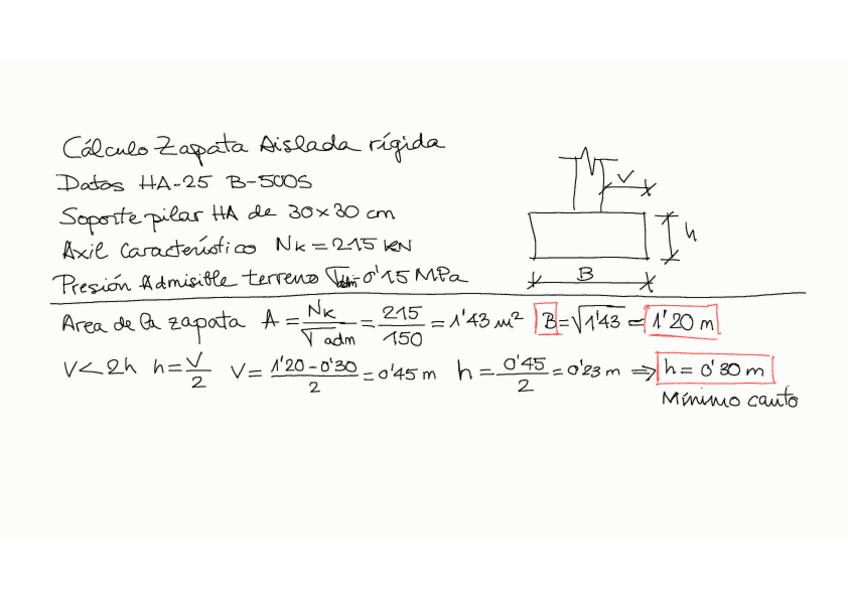 Cálculo Zapata Aislada rígida
Datos HA-25 B-500S
Soporte pilar HA de 30x30 cm
Axil Característico Nk = 215 kN
Presión Admisible terreno σadm = 0'15 MPa
V
h
B
Area de la zapata A = Nk / σadm = 215 / 150 = 1'43 m² B = √1'43 = 1'20 m
V < 2h h = V / 2 V = 1'20 - 0'30 / 2 = 0'45 m h = 0'45 / 2 = 0'23 m ⇒ h = 0'30 m
Mínimo canto